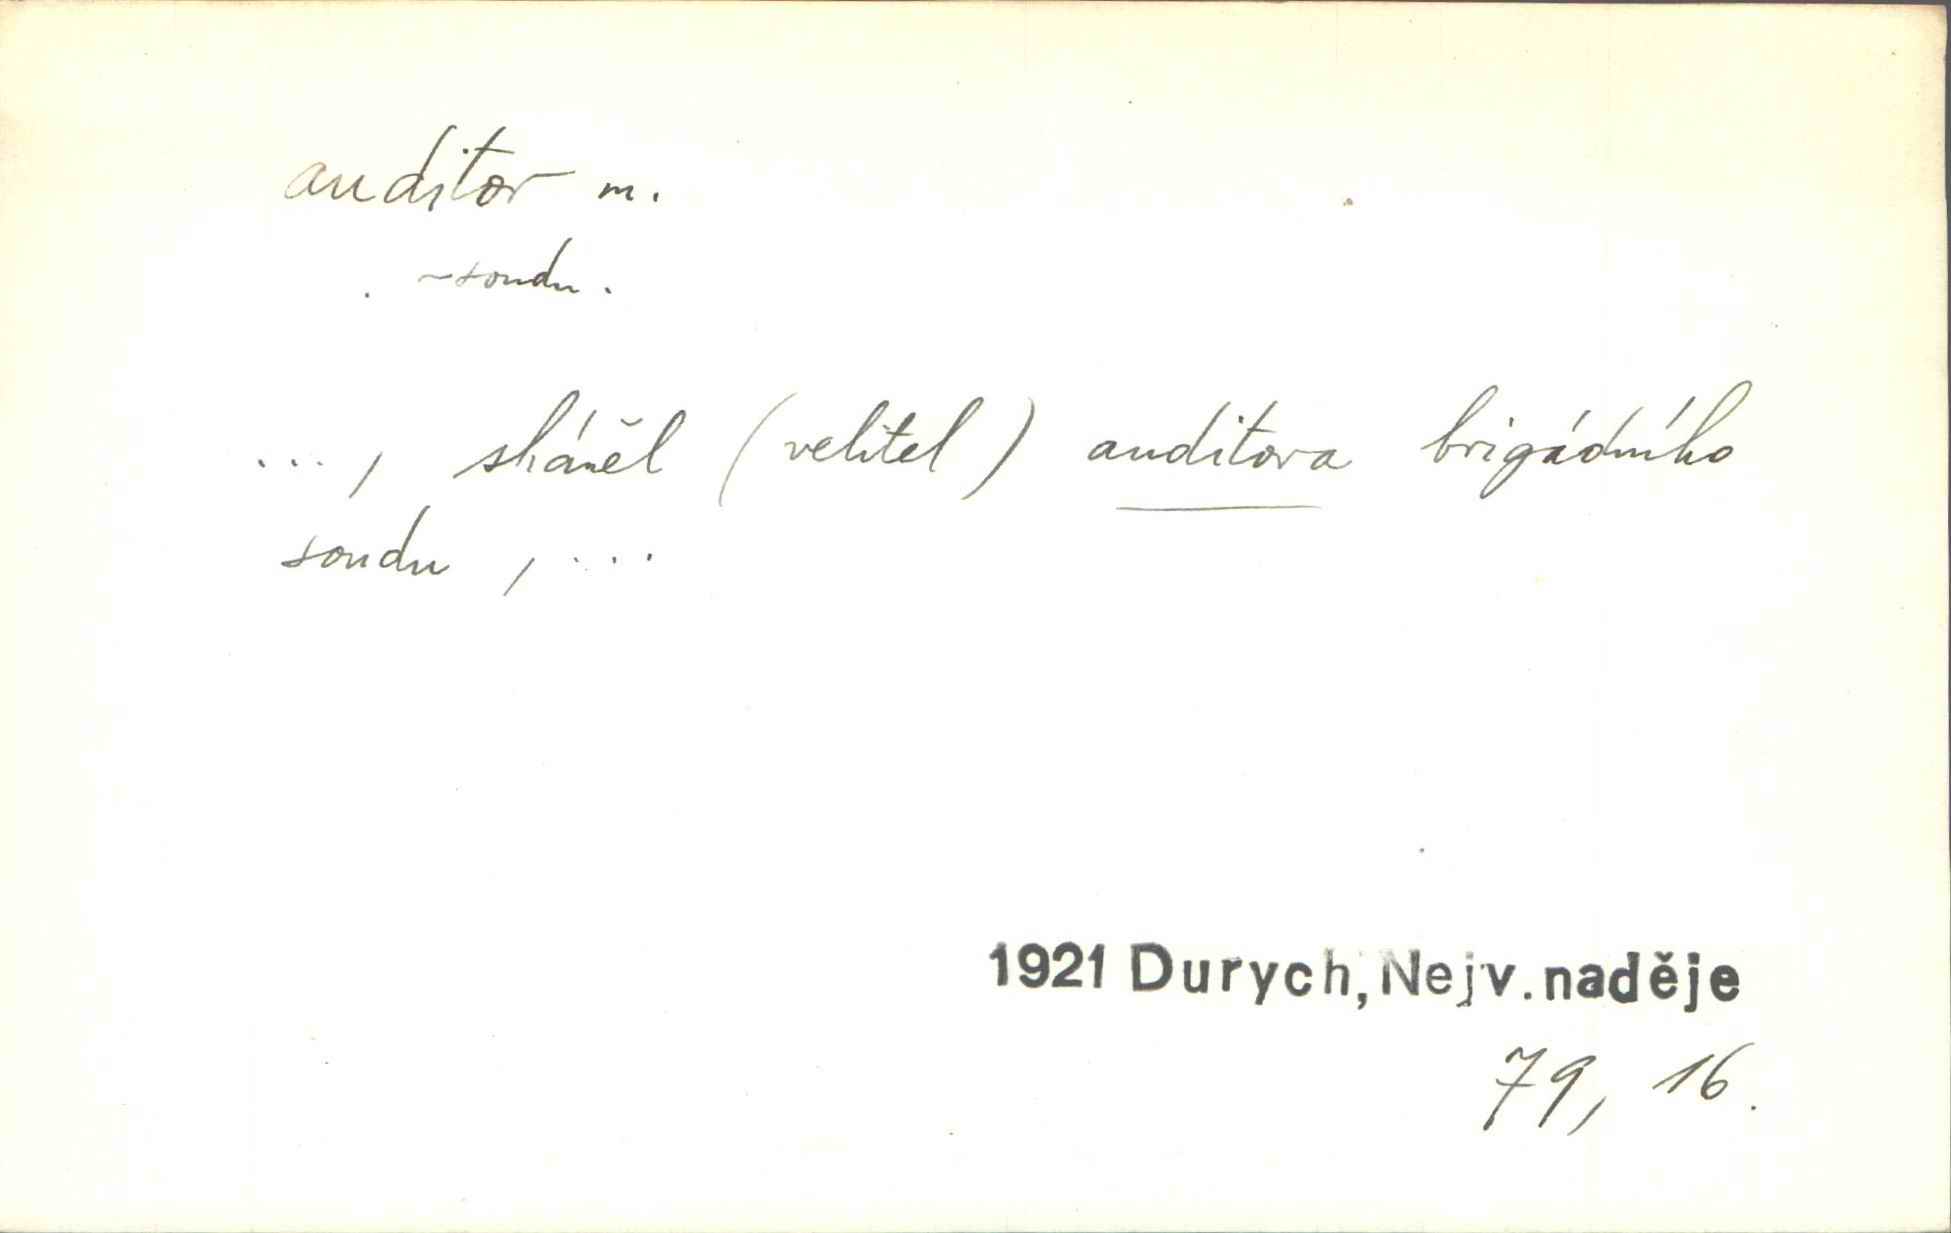 auditor m.
~ soudu.
..., sháněl (velitel) auditora brigádního
soudu, ...
1921 Durych, Nejv. naděje
79, 16.